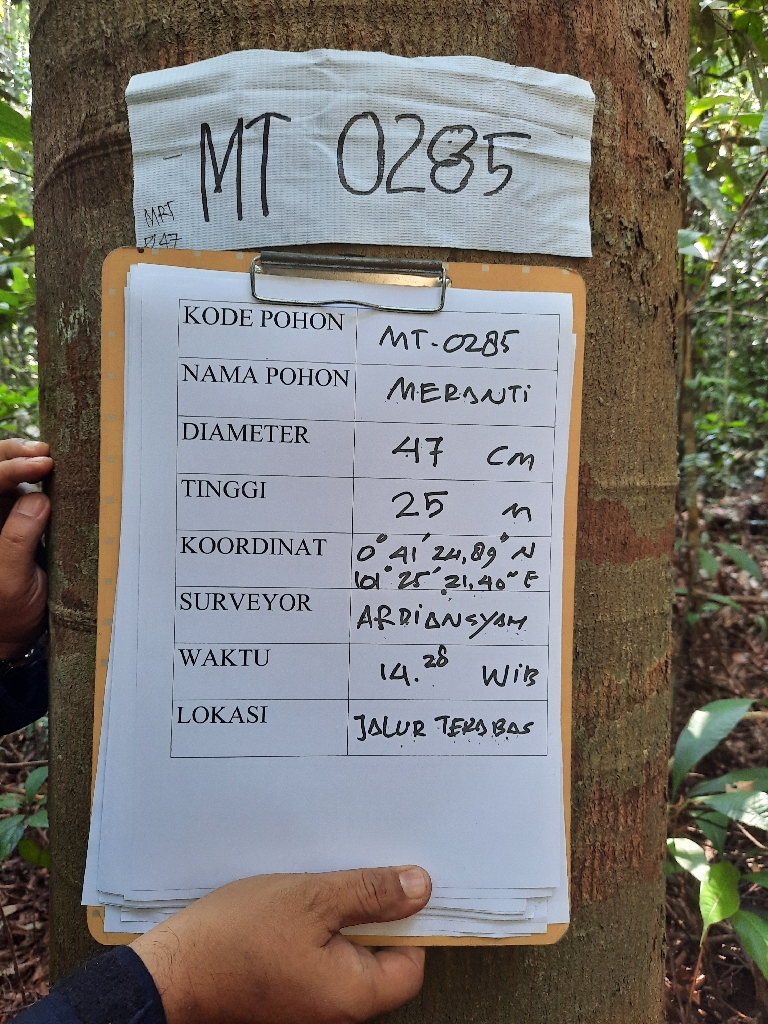 MT 0285
MRT
D/47
KODE POHON MT-0285
NAMA POHON MERANTI
DIAMETER 47 cm
TINGGI 25 m
KOORDINAT 0° 41' 24,89" N
101° 25' 21,40" E
SURVEYOR ARDIANSYAH
WAKTU 14.28 WIB
LOKASI JALUR TERABAS